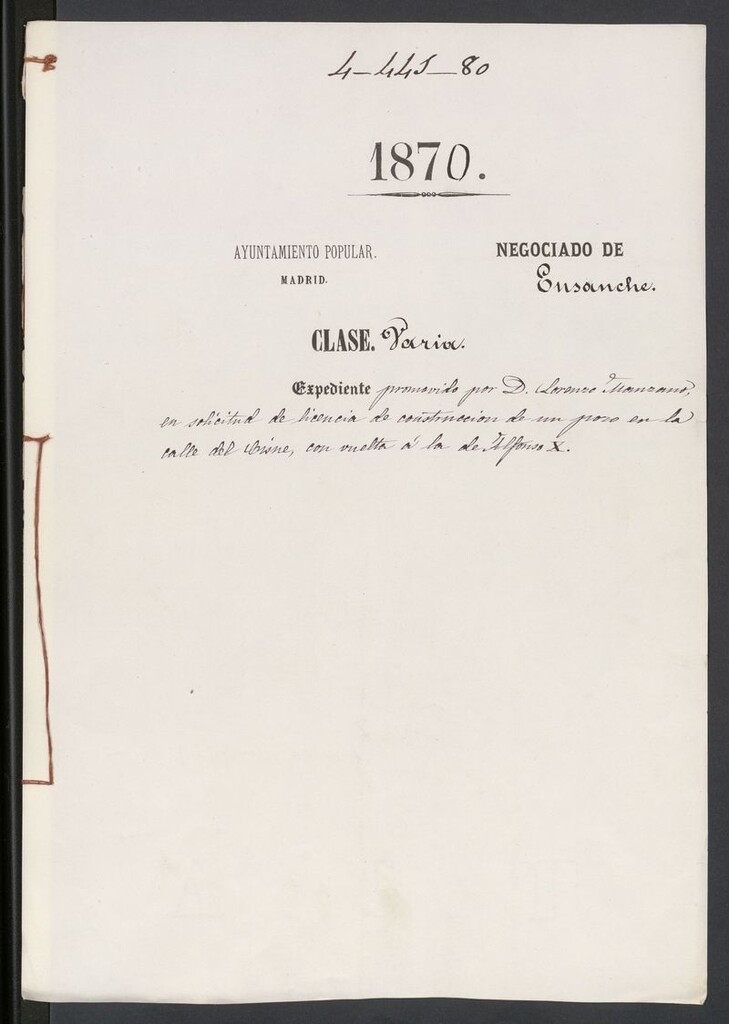 4-445-80
1870.
AYUNTAMIENTO POPULAR.
MADRID.
NEGOCIADO DE
Ensanche.
CLASE. Varia.
Expediente promovido por D. Lorenzo Manzano,
en solicitud de licencia de construccion de un pozo en la
calle del Cisne, con vuelta á la de Alfonso X.